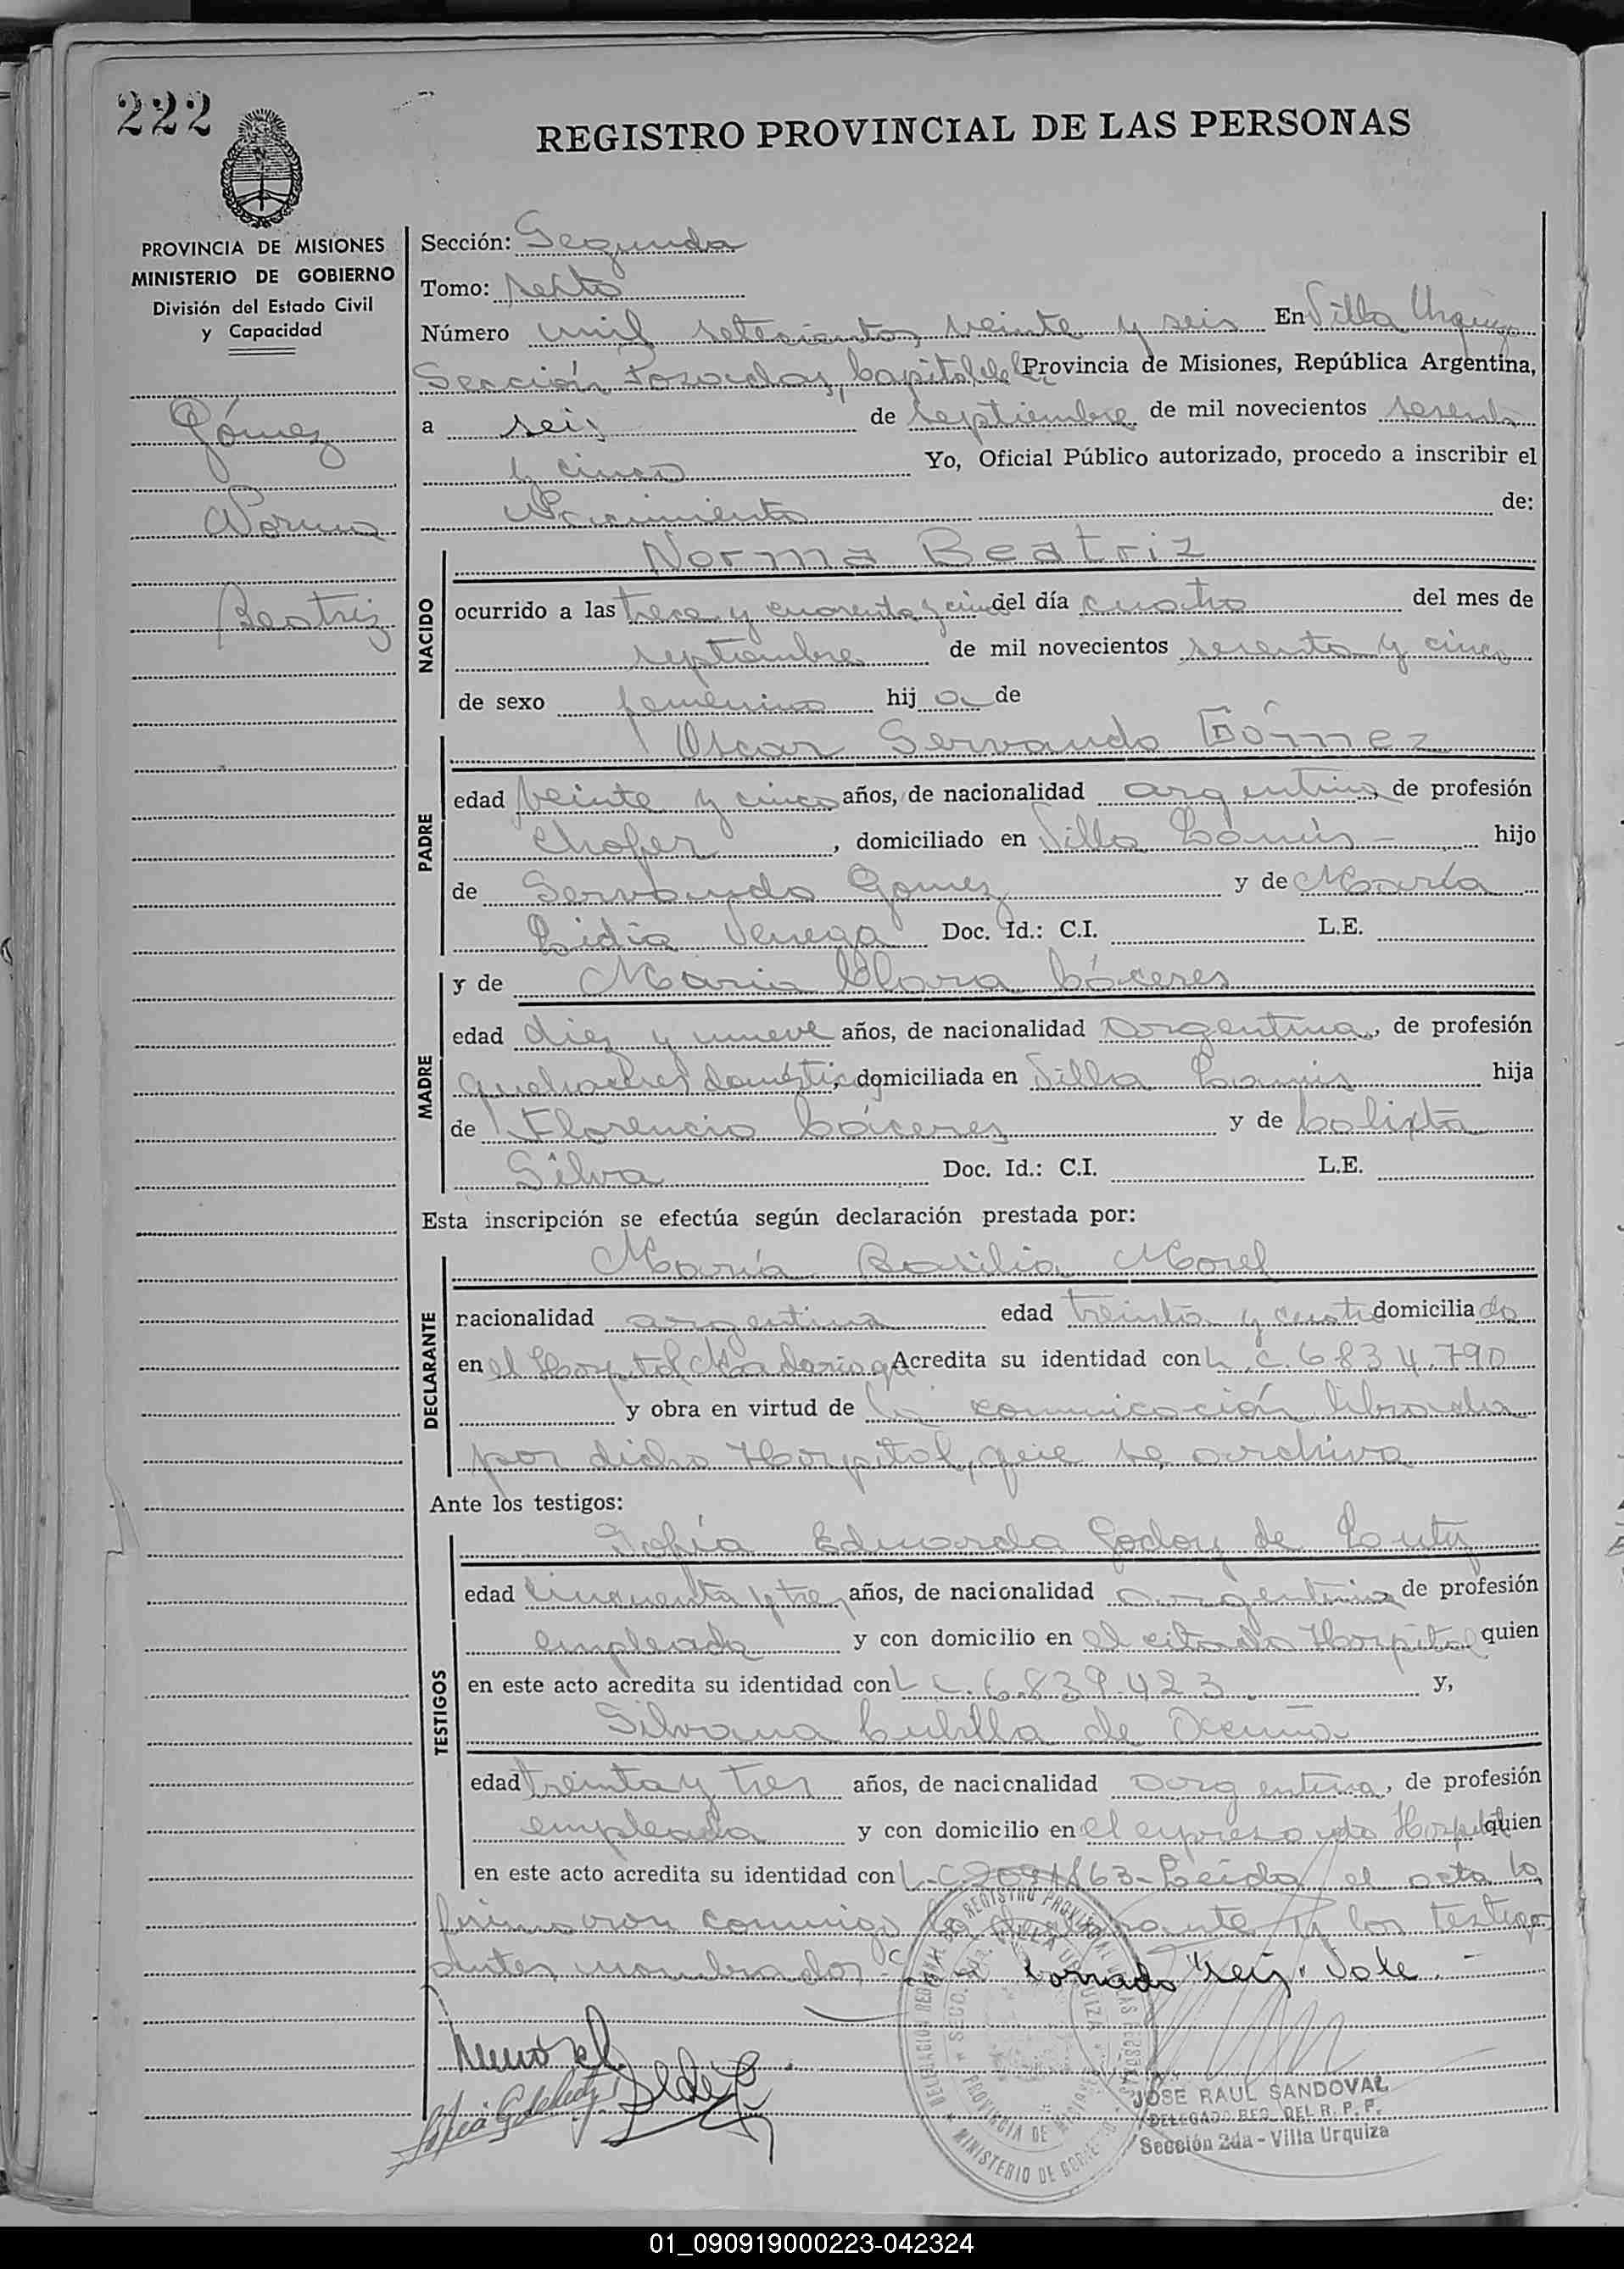 222
REGISTRO PROVINCIAL DE LAS PERSONAS
PROVINCIA DE MISIONES
MINISTERIO DE GOBIERNO
División del Estado Civil
y Capacidad
Gómez
Norma
Beatriz
Sección: Segunda
Tomo: sexto
Número mil setecientos veinte y seis En Villa Urquiza
Sección Posadas, Capital de la Provincia de Misiones, República Argentina,
a seis de septiembre de mil novecientos sesenta
y cinco Yo, Oficial Público autorizado, procedo a inscribir el
Nacimiento de:
NACIDO
Norma Beatriz
ocurrido a las trece y cuarenta y cinco del día cuatro del mes de
septiembre de mil novecientos sesenta y cinco
de sexo femenino hij a de
PADRE
Oscar Servando Gómez
edad veinte y cinco años, de nacionalidad argentina, de profesión
chofer, domiciliado en Villa Lanús - hijo
de Servando Gomez y de María
Lidia Venega Doc. Id.: C.I. L.E.
MADRE
y de María Clara Cáceres
edad diez y nueve años, de nacionalidad argentina, de profesión
quehaceres domésticos, domiciliada en Villa Lanús hija
de Florencio Cáceres y de Calixta
Silva Doc. Id.: C.I. L.E.
Esta inscripción se efectúa según declaración prestada por:
DECLARANTE
María Basilia Morel
nacionalidad argentina edad treinta y cuatro domicilia da
en el Hospital Madariaga Acredita su identidad con L.C. 6834.790
y obra en virtud de la comunicación librada
por dicho Hospital, que se archiva
Ante los testigos:
TESTIGOS
Sofía Eduarda Godoy de
edad cincuenta y tres años, de nacionalidad argentina de profesión
empleada y con domicilio en el citado Hospital quien
en este acto acredita su identidad con L.C. 6.839.423 y,
Silvana Cubilla de
edad treinta y tres años, de nacionalidad argentina, de profesión
empleada y con domicilio en el expresado Hospital quien
en este acto acredita su identidad con L.C. Leída el acta la
firmaron conmigo la declarante y los testigos
antes nombrados. Borrado "seis" Vale. -
Morel
JOSE RAUL SANDOVAL
DELEGADO REG. DEL R. P. P.
Sección 2da - Villa Urquiza
01_090919000223-042324